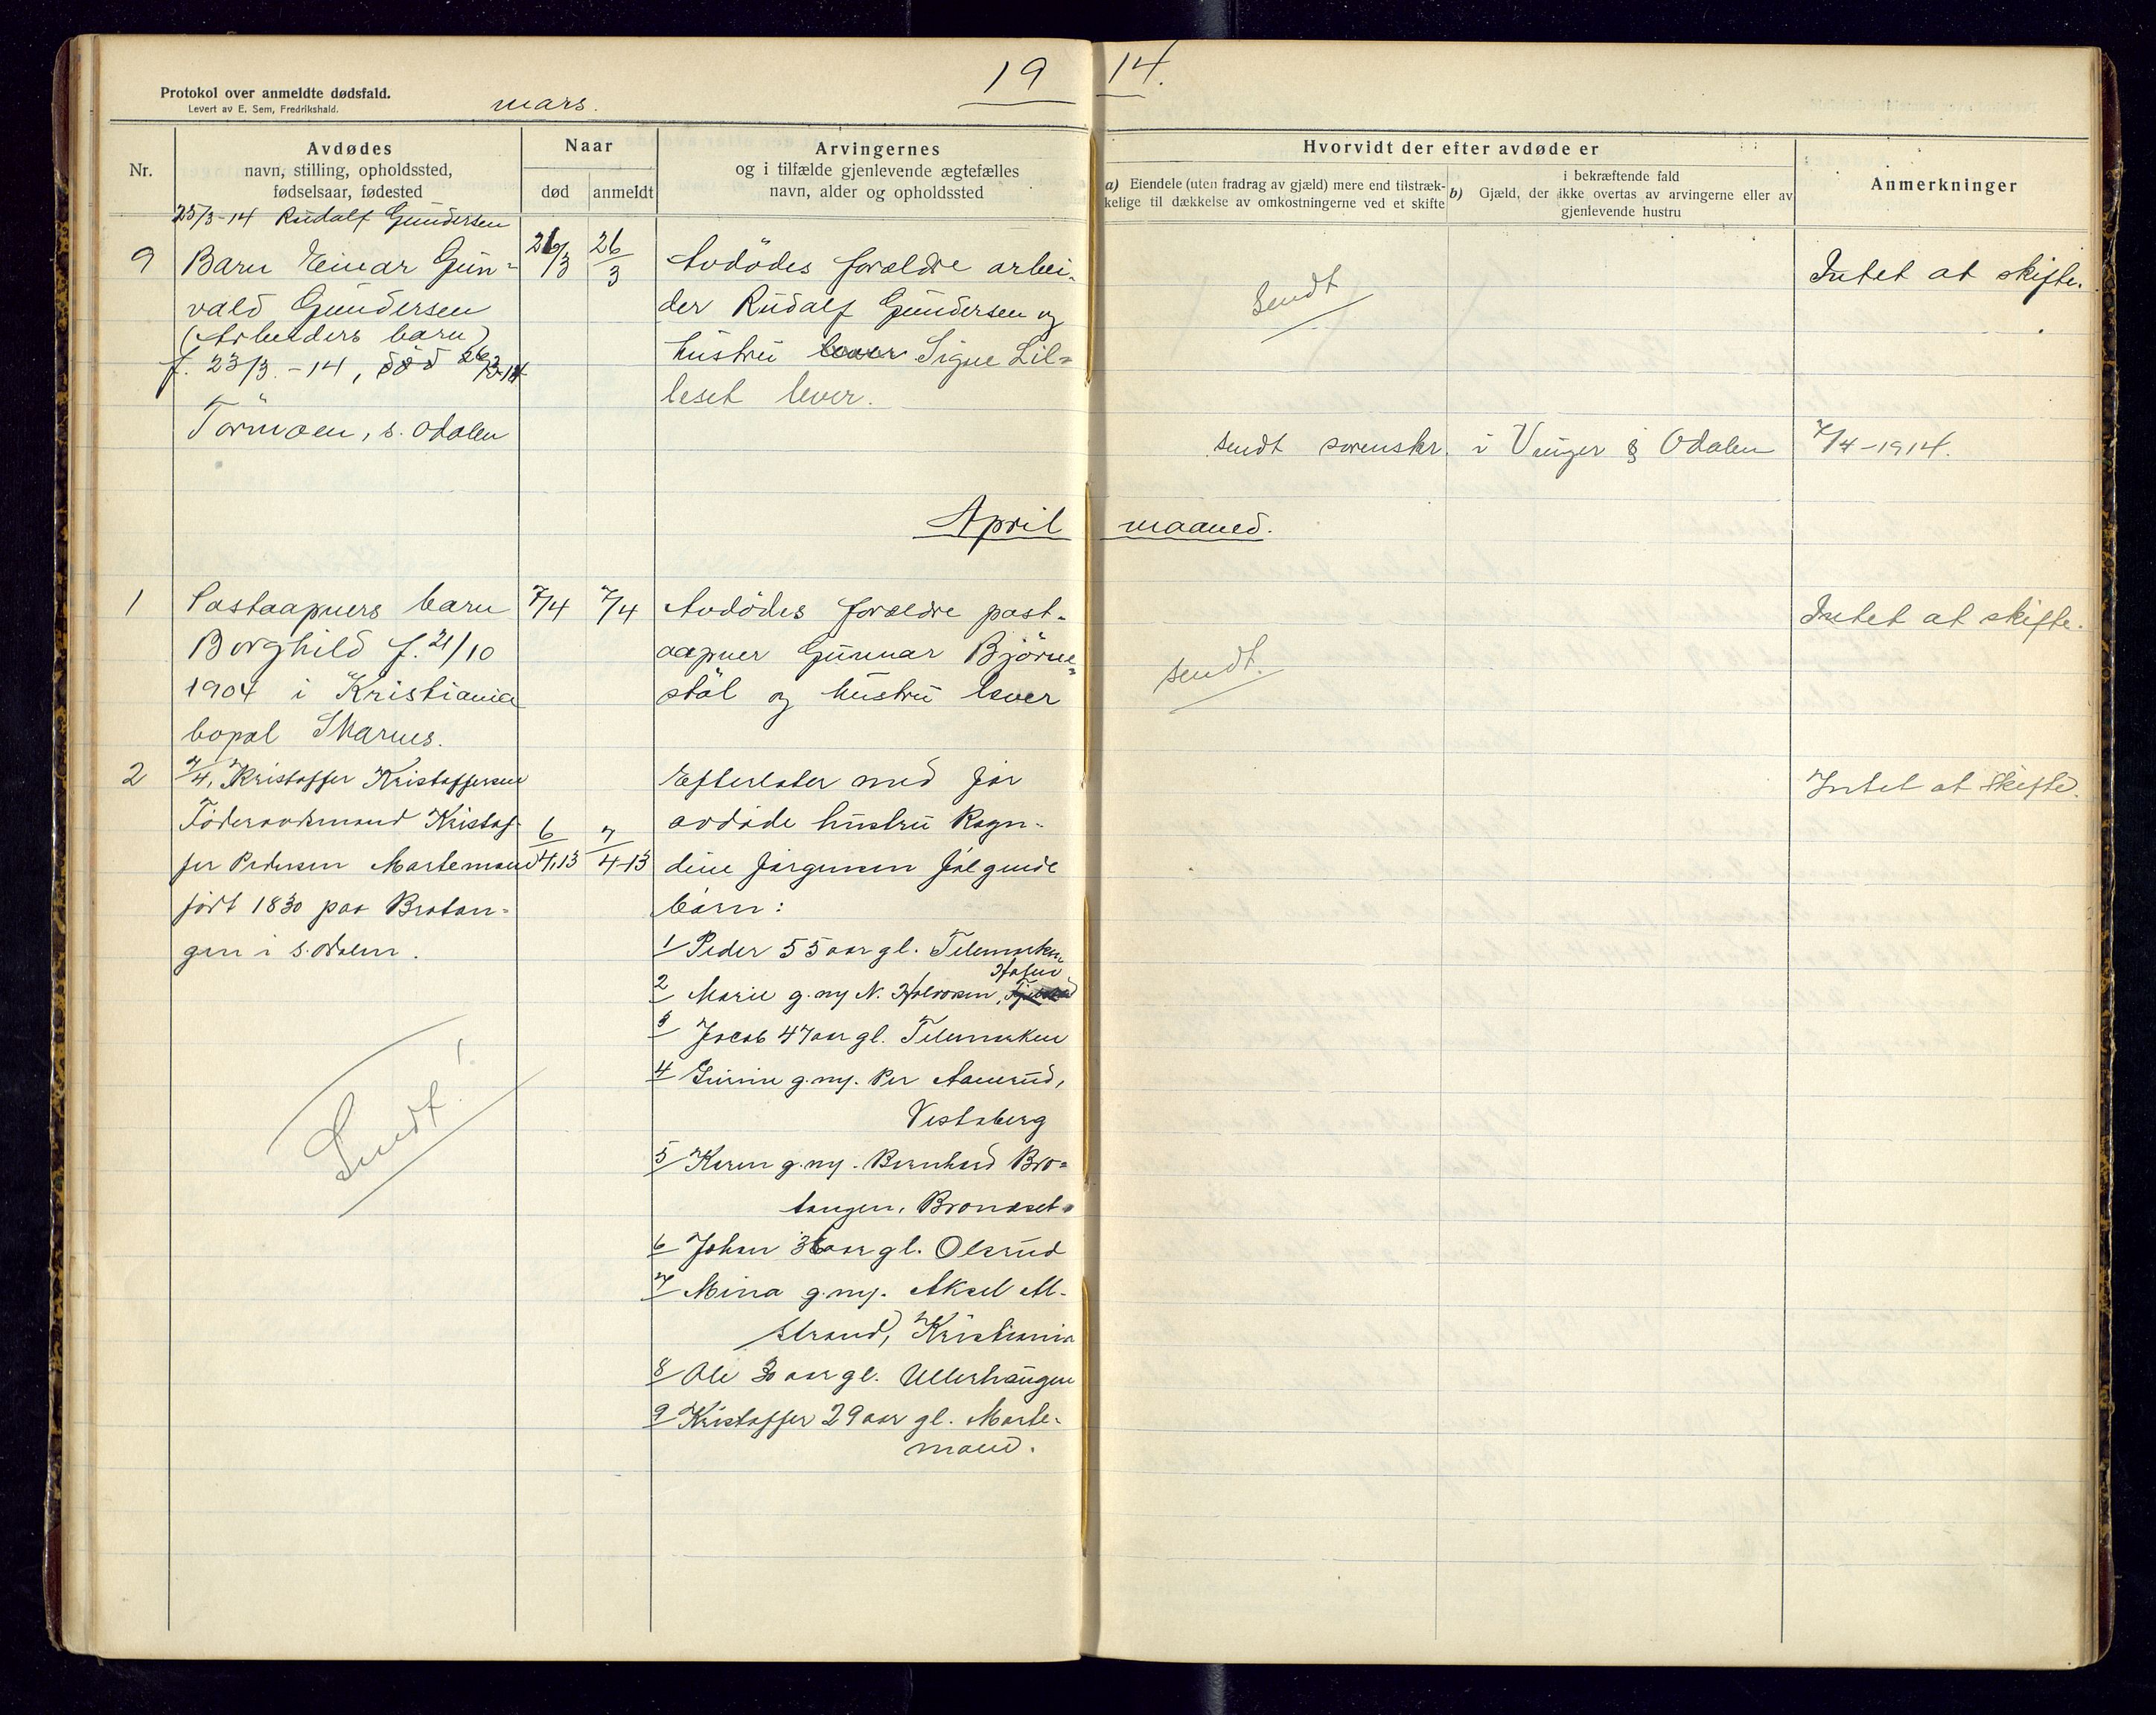 19 14.
Protokol over anmeldte dødsfald.
Levert av E. Sem, Fredrikshald.
mars.
Nr.
Avdødes
navn, stilling, opholdssted,
fødselsaar, fødested
Naar
død
anmeldt
Arvingernes
og i tilfælde gjenlevende ægtefælles
navn, alder og opholdssted
Hvorvidt der efter avdøde er
a) Eiendele (uten fradrag av gjæld) mere end tilstræk-
kelige til dækkelse av omkostningerne ved et skifte
i bekræftende fald
b) Gjæld, der ikke overtas av arvingerne eller av
gjenlevende hustru
Anmerkninger
25/3-14 Rudalf Gundersen
9
Barn Einar Gun-
vald Gundersen
(Arbeiders barn)
f. 23/3.-14, död 26/3-14
Tormoen, s. Odalen
26/3
26/3
Avdödes foræeldre arbei-
der Rudalf Gundersen og
hustru lever Signe Lil-
leset lever.
Sendt
Intet at skifte.
sendt sorenskr. i Vinger & Odalen 7/4-1914.
April maaned.
1
Postaapners barn
Borghild f. 21/10
1904 i Kristiania
bopæl Skarnes.
7/4
7/4
Avdödes forældre post-
aapner Gunnar Björne-
stöl og hustru lever
sendt.
Intet at skifte.
2
7/4, Kristoffer Kristoffersen
Föderaadsmand Kristof-
fer Pedersen Martemoen
födt 1830 paa Brotan-
gen i s. Odalen.
6/4.13
7/4-13
Efterlater med för
avdöde hustru Ragn-
dine Jörgensen fölgende
börn:
1 Peder 55 aar gl. Telemarken
2 Marie g. m/ N. Halvorsen, Hafsl.
3 Jacob 47 aar gl. Telemarken
4 Gurine g. m/. Per Aamrud,
Vestaberg
5 Karen g. m/. Bernhard Bro-
tangen, Bronæset
6 Johan 36 aar gl. Olsrud
7 Mina g. m/. Aksel Al-
strand, Kristiania
8 Ole 30 aar gl. Ullerhaugen
9 Kristoffer 29 aar gl. Marte-
moen.
Sendt!
Intet at skifte.